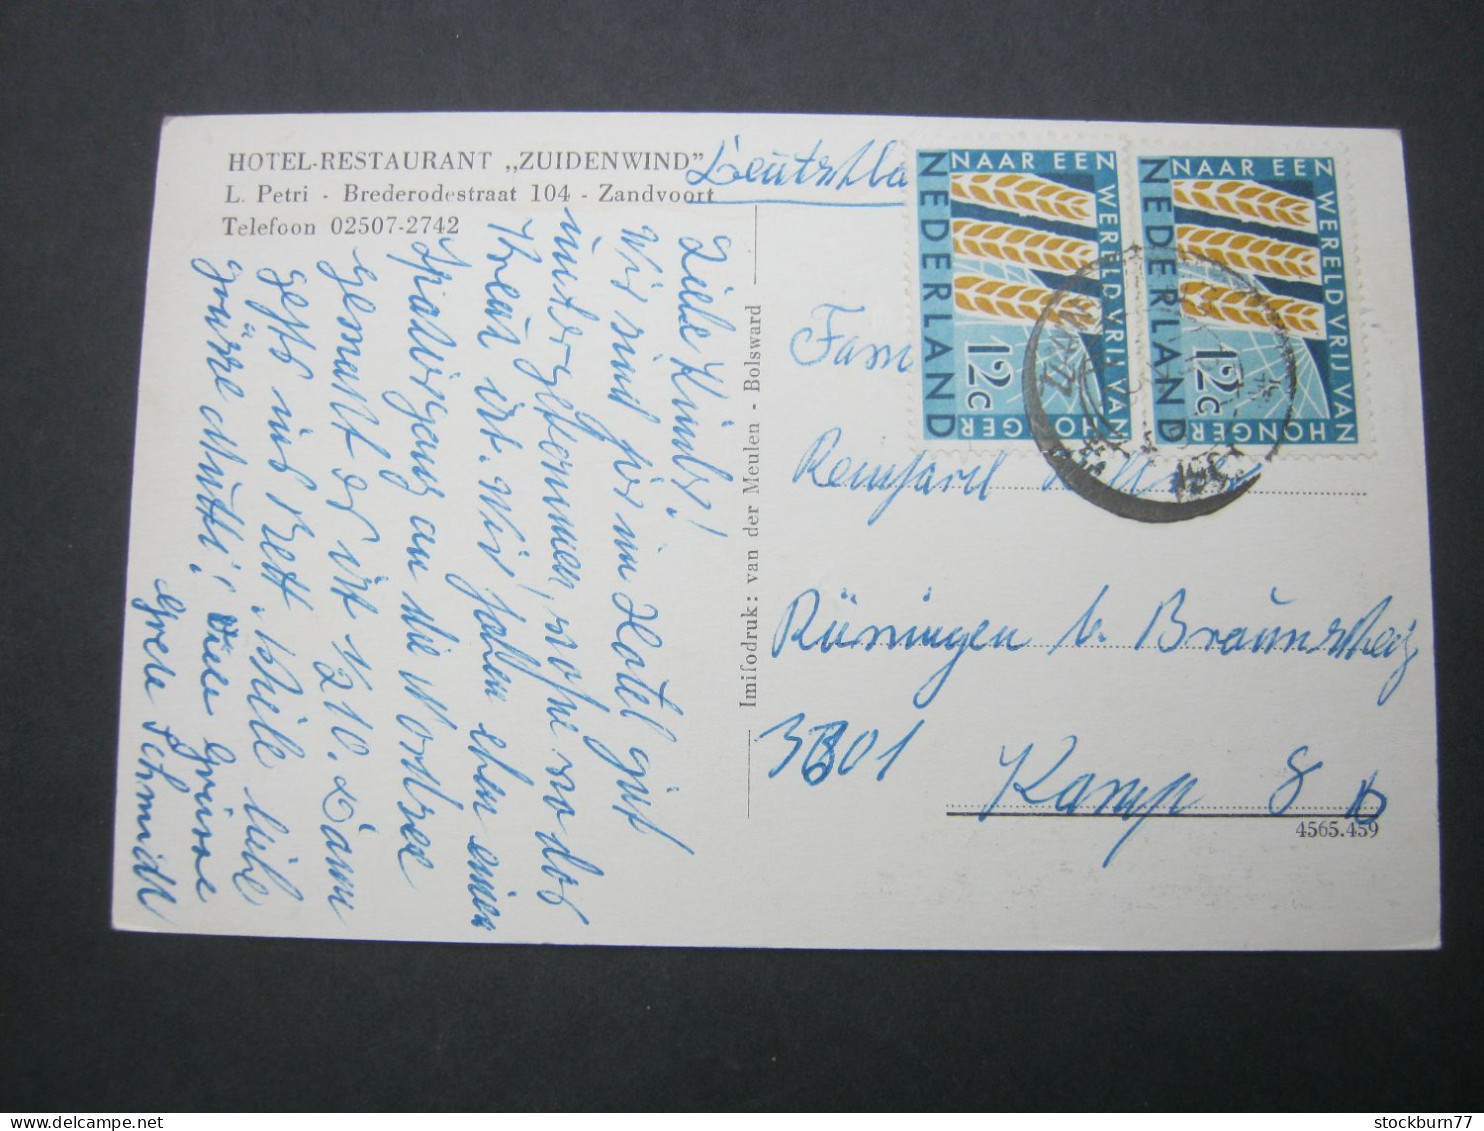 HOTEL-RESTAURANT „ZUIDENWIND"
L. Petri - Brederodestraat 104 - Zandvoort
Telefoon 02507-2742
Liebe Kinder!
Wir sind hir im Hotel gut
untergekommen, wo das
Kreuz ist. Wir haben eben einen
Spaziergang an die Nordsee
gemacht es ist ½ 10. Dann
gehts ins Bett. Viele liebe
Grüße Mutti! Viele Grüsse
Grete Schmidt
Imisodruk: van der Meulen - Bolsward
Fam
Reinhard
Rüningen b. Braunschweig
3301
Kamp 8 b
4565.459
NEDERLAND
NAAR EEN WERELD VRIJ VAN HONGER
12c
NEDERLAND
NAAR EEN WERELD VRIJ VAN HONGER
12c
stockburn77